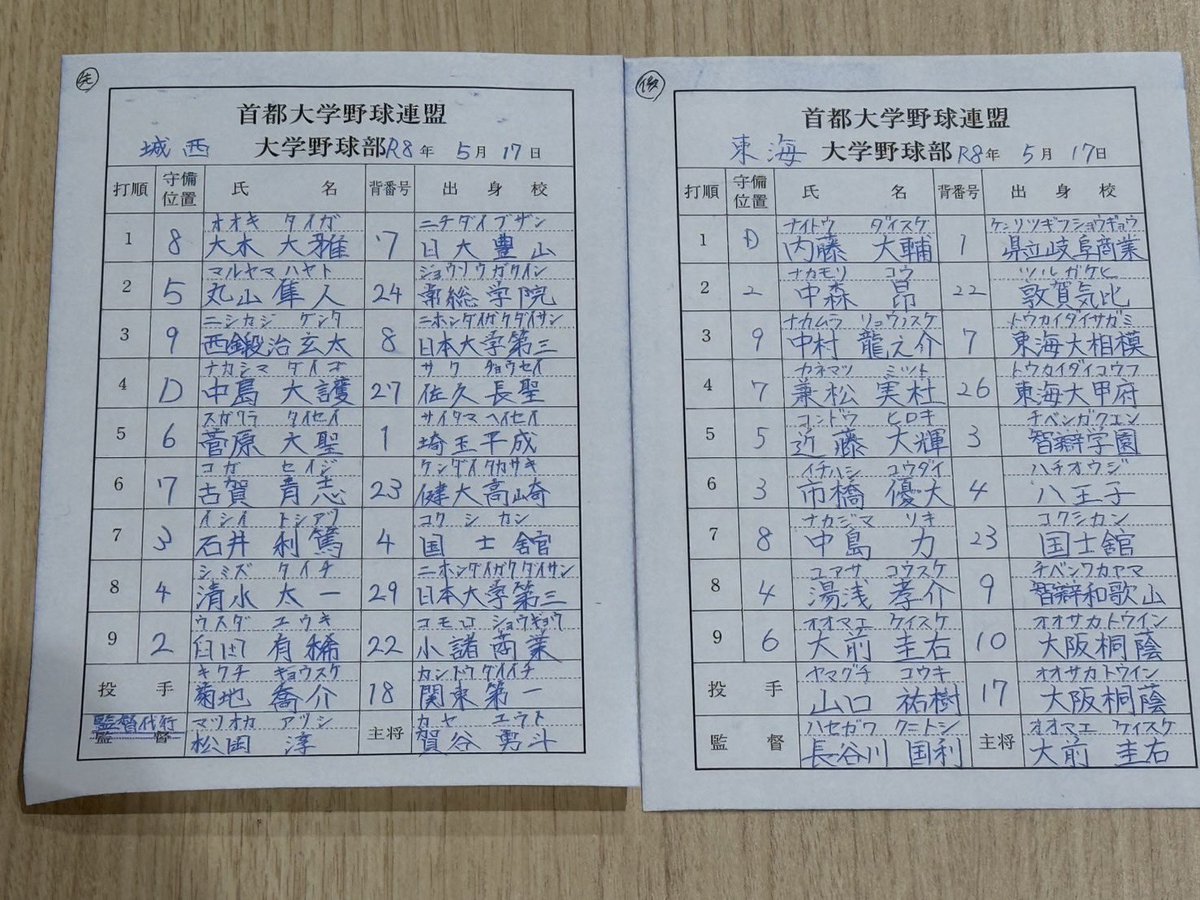 先
首都大学野球連盟
城西 大学野球部 R8年 5月 17日
打順 守備位置 氏名 背番号 出身校
オオキ タイガ ニチダイブザン
1 8 大木 大雅 7 日大豊山
マルヤマ ハヤト ジョウソウガクイン
2 5 丸山 隼人 24 常総学院
ニシカジ ゲンタ ニホンダイガクダイサン
3 9 西鍛治 玄太 8 日本大学第三
ナカシマ ダイゴ サク チョウセイ
4 D 中島 大護 27 佐久長聖
スガワラ タイセイ サイタマヘイセイ
5 6 菅原 大聖 1 埼玉平成
コガ セイジ ケンダイタカサキ
6 7 古賀 青志 23 健大高崎
イシイ トシアツ コクシカン
7 3 石井 利篤 4 国士舘
シミズ タイチ ニホンダイガクダイサン
8 4 清水 太一 29 日本大学第三
ウスダ ユウキ コモロ ショウギョウ
9 2 臼田 有稀 22 小諸商業
キクチ キョウスケ カントウダイイチ
投手 菊地 喬介 18 関東第一
マツオカ アツシ カヤ ユウト
監督代行 監督 松岡 淳 主将 賀谷 勇斗
後
首都大学野球連盟
東海 大学野球部 R8年 5月 17日
打順 守備位置 氏名 背番号 出身校
ナイトウ ダイスケ ケンリツギフショウギョウ
1 D 内藤 大輔 1 県立岐阜商業
ナカモリ コウ ツルガケヒ
2 2 中森 昂 22 敦賀気比
ナカムラ リョウノスケ トウカイダイサガミ
3 9 中村 龍之介 7 東海大相模
カネマツ ミツト トウカイダイコウフ
4 7 兼松 実杜 26 東海大甲府
コンドウ ヒロキ チベンガクエン
5 5 近藤 大輝 3 智辯学園
イチハシ コウダイ ハチオウジ
6 3 市橋 優大 4 八王子
ナカジマ リキ コクシカン
7 8 中島 力 23 国士舘
ユアサ コウスケ チベンワカヤマ
8 4 湯浅 孝介 9 智辯和歌山
オオマエ ケイスケ オオサカトウイン
9 6 大前 圭右 10 大阪桐蔭
ヤマグチ コウキ オオサカトウイン
投手 山口 祐樹 17 大阪桐蔭
ハセガワ クニトシ オオマエ ケイスケ
監督 長谷川 国利 主将 大前 圭右